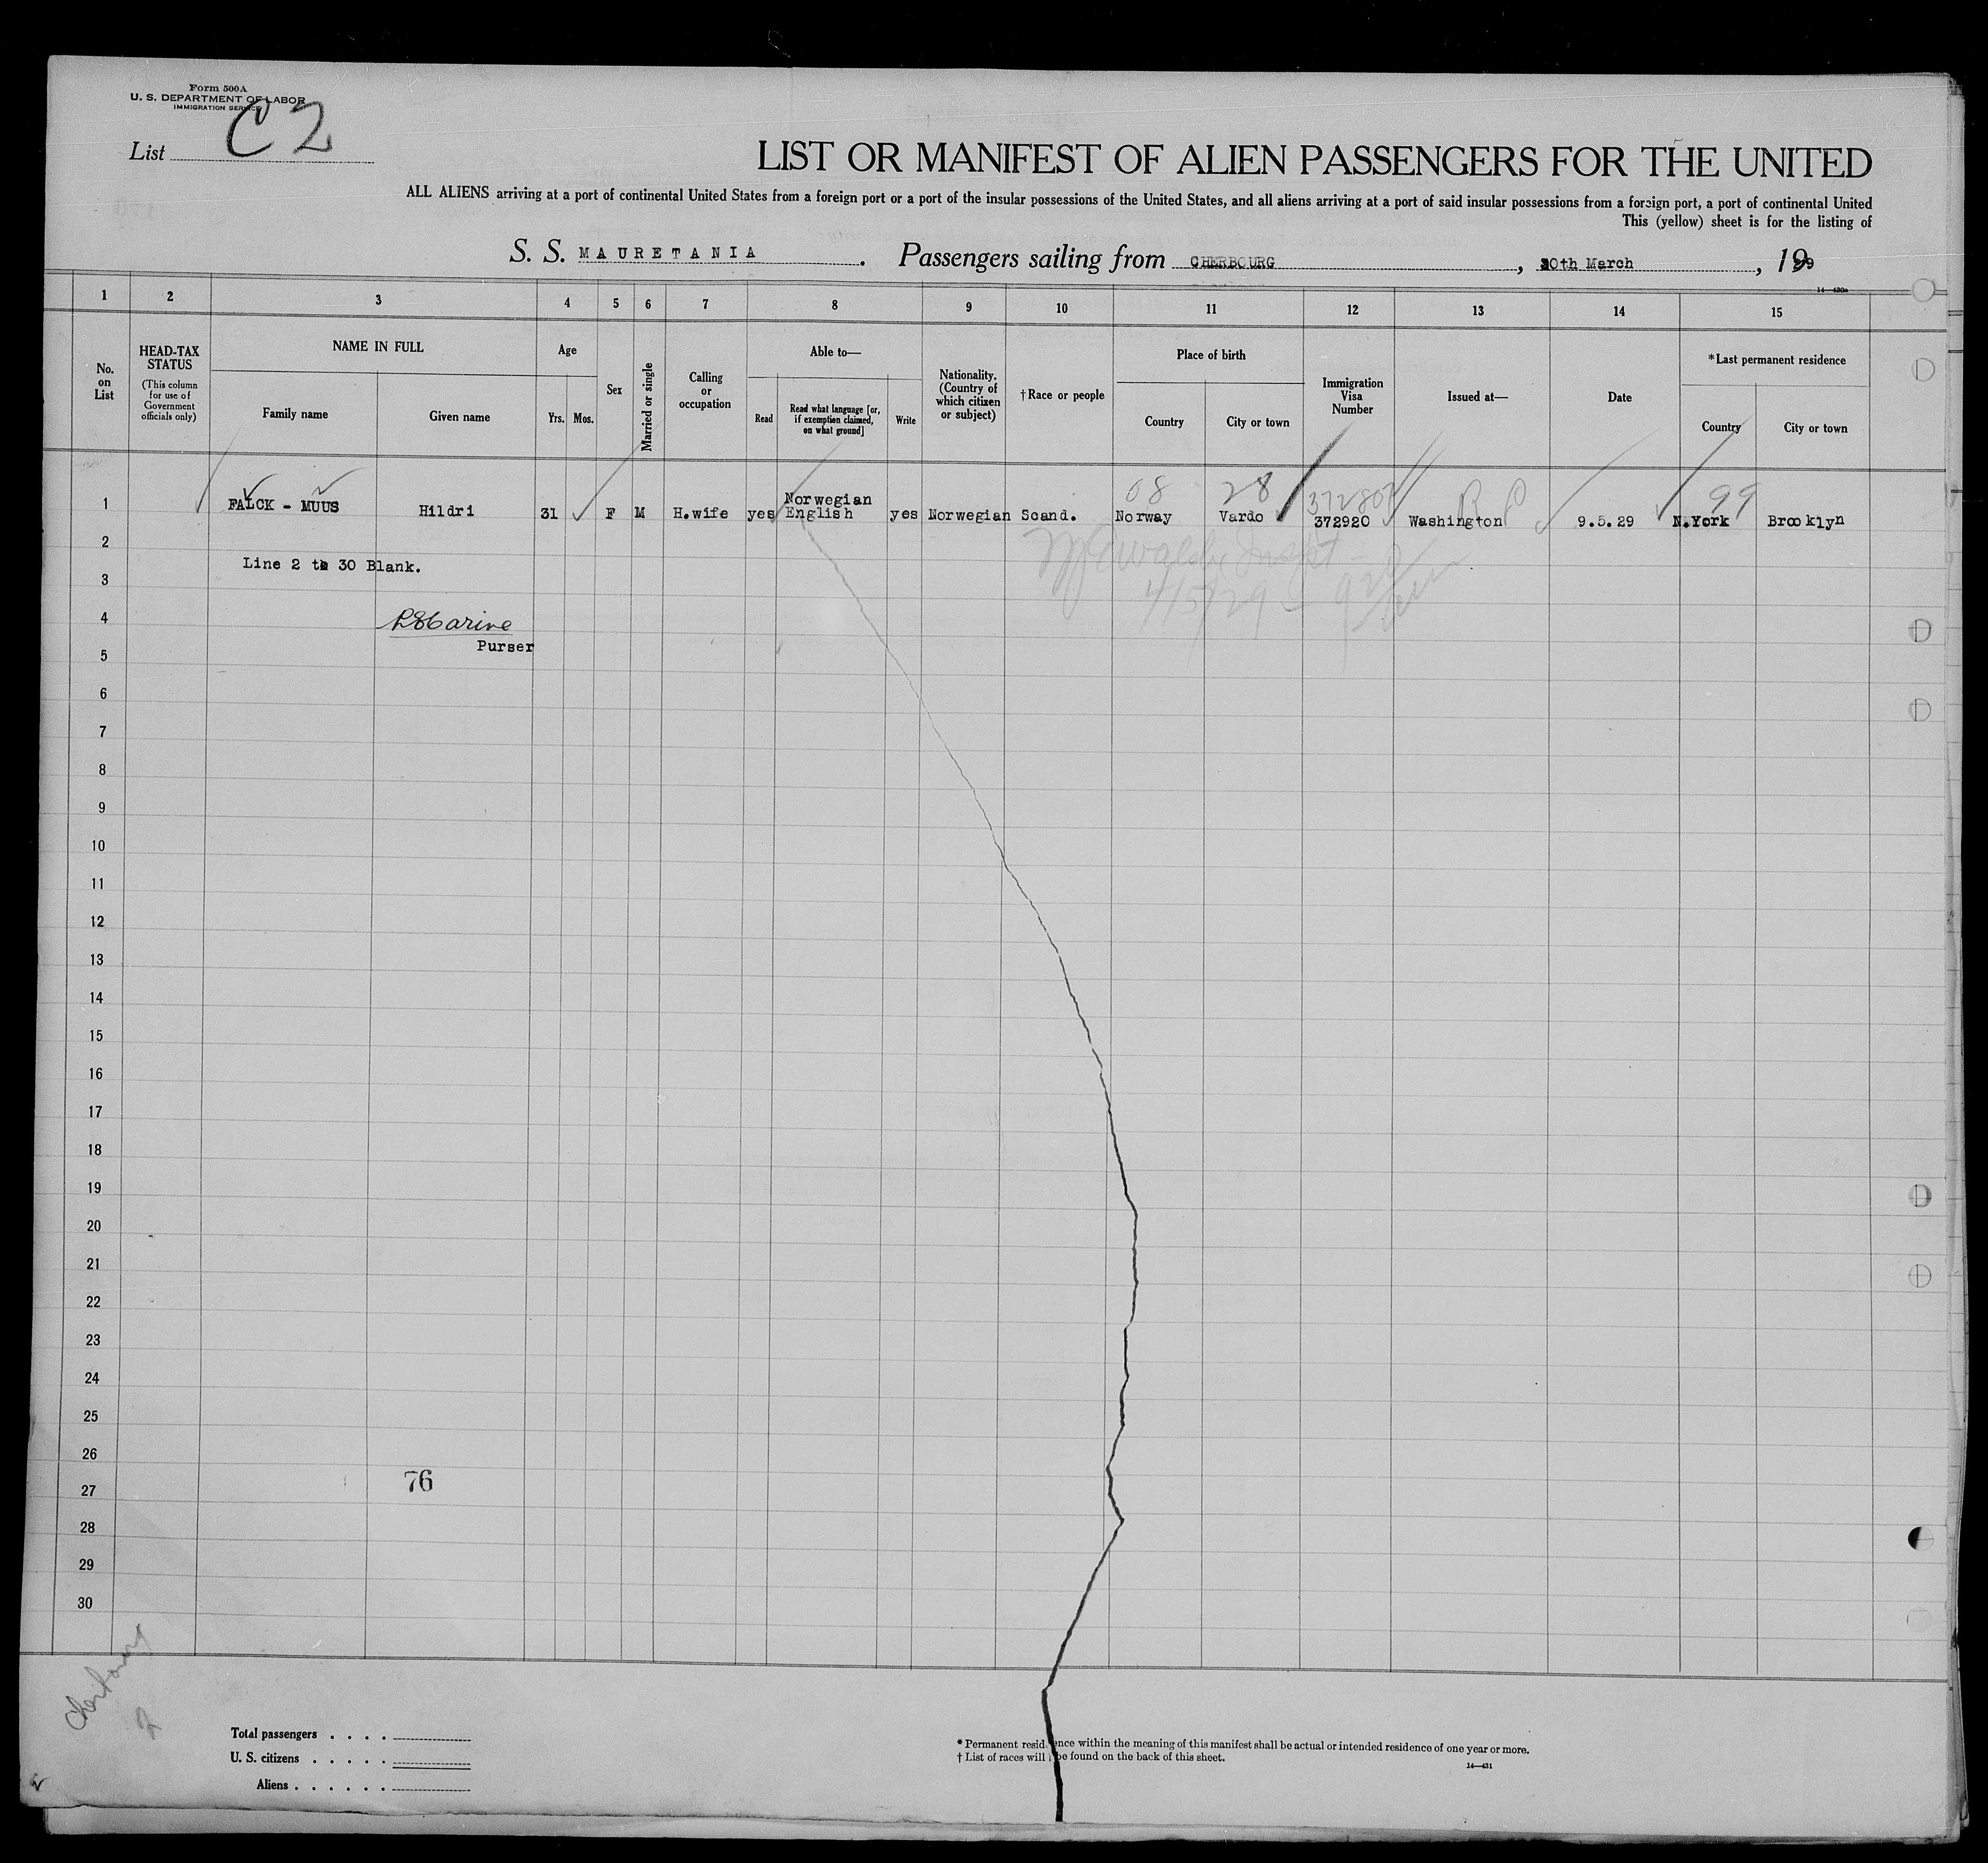 Form 500A
U. S. DEPARTMENT OF LABOR
IMMIGRATION SERVICE
List C 2
LIST OR MANIFEST OF ALIEN PASSENGERS FOR THE UNITED
ALL ALIENS arriving at a port of continental United States from a foreign port or a port of the insular possessions of the United States, and all aliens arriving at a port of said insular possessions from a foreign port, a port of continental United
This (yellow) sheet is for the listing of
S. S. MAURETANIA . Passengers sailing from CHERBOURG , 30th March , 1929
14—430a
1 2 3 4 5 6 7 8 9 10 11 12 13 14 15
No. on List
HEAD-TAX STATUS (This column for use of Government officials only)
NAME IN FULL
Family name
Given name
Age
Yrs. Mos.
Sex
Married or single
Calling or occupation
Able to—
Read
Read what language [or, if exemption claimed, on what ground]
Write
Nationality. (Country of which citizen or subject)
†Race or people
Place of birth
Country
City or town
Immigration Visa Number
Issued at—
Date
*Last permanent residence
Country
City or town
08 28 372802 99
1 FALCK - MUUS Hildri 31 F M H.wife yes Norwegian English yes Norwegian Scand. Norway Vardo 372920 Washington 9.5.29 N.York Brooklyn
2
Line 2 to 30 Blank.
3
4
Purser
5
6
7
8
9
10
11
12
13
14
15
16
17
18
19
20
21
22
23
24
25
26
76
27
28
29
30
Cherbourg
2
Total passengers . . . .
U. S. citizens . . . . .
Aliens . . . . . .
* Permanent residence within the meaning of this manifest shall be actual or intended residence of one year or more.
† List of races will be found on the back of this sheet.
14—431